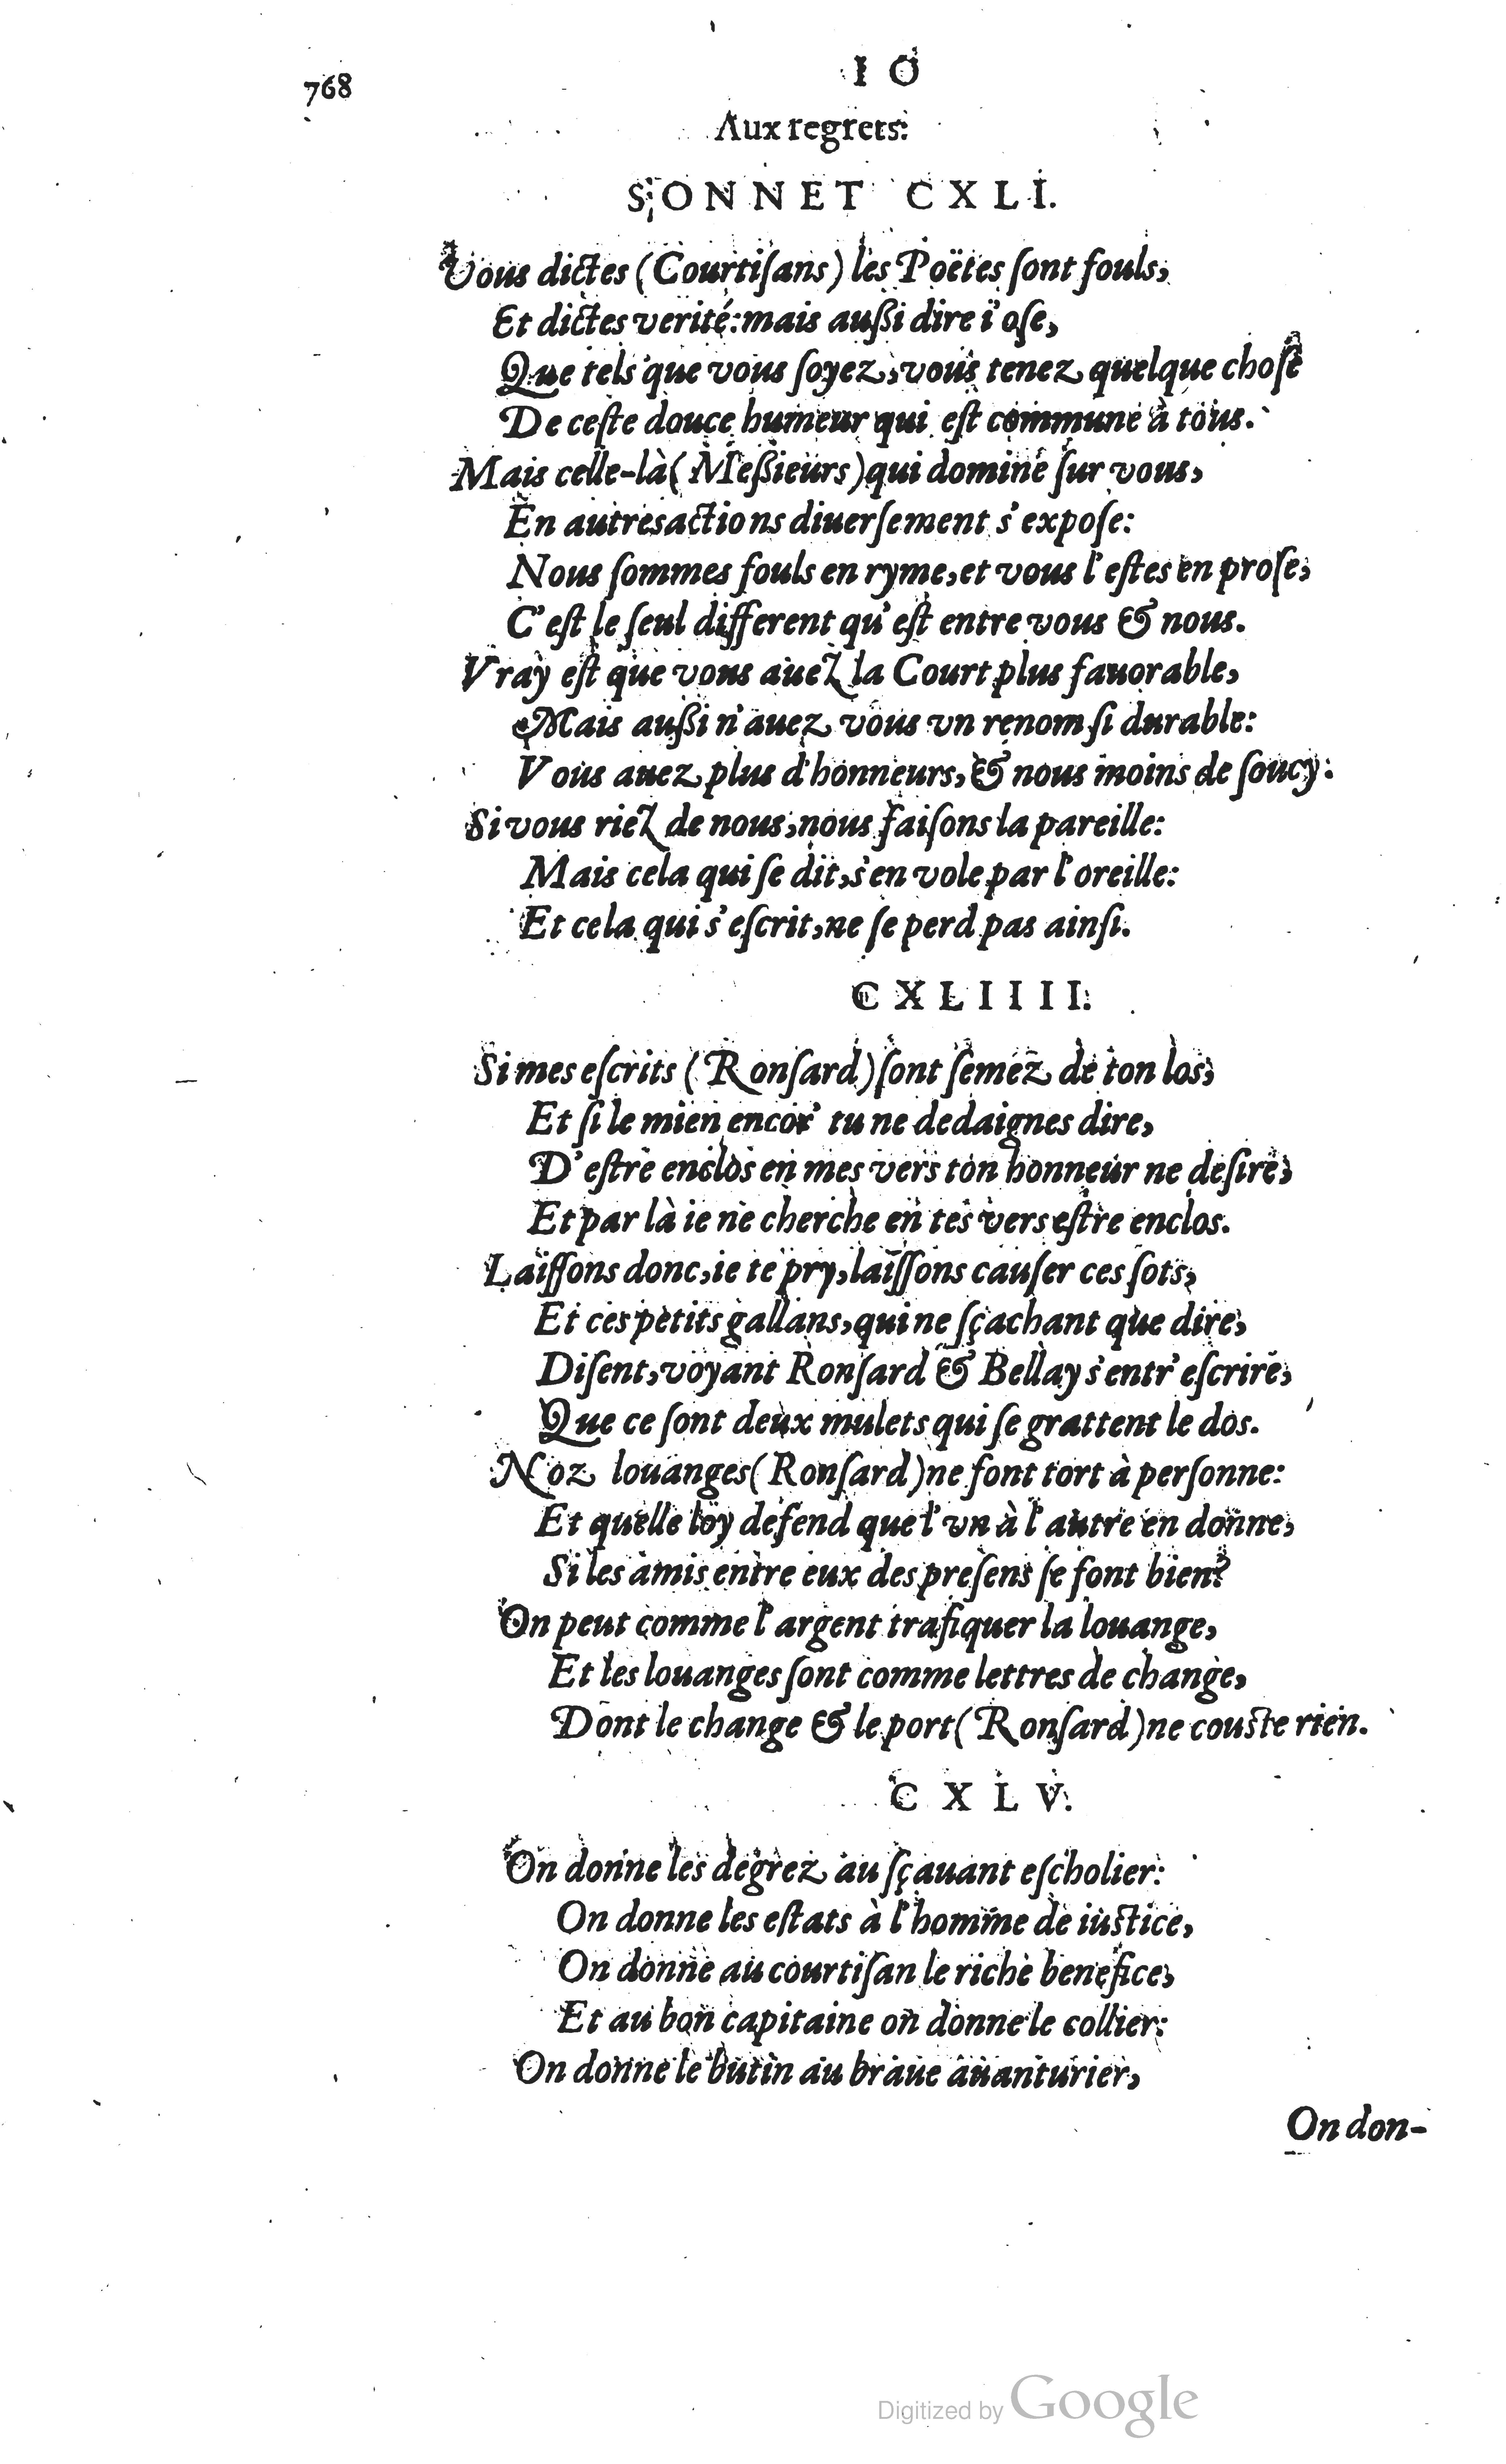 768
I O
Aux regrets.
SONNET CXLI.
Vous dictes (Courtiſans) les Poëtes ſont fouls,
Et dictes verité: mais außi dire i'oſe,
Que tels que vous ſoyez, vous tenez quelque choſe
De ceſte douce humeur qui eſt commune à tous.
Mais celle-là (Meßieurs) qui domine ſur vous,
En autres actions diuerſement s'expoſe:
Nous ſommes fouls en ryme, et vous l'eſtes en proſe,
C'eſt le ſeul different qu'eſt entre vous & nous.
Vray eſt que vous auez la Court plus fauorable,
Mais außi n'auez vous vn renom ſi durable:
Vous auez plus d'honneurs, & nous moins de ſoucy.
Si vous riez de nous, nous faiſons la pareille:
Mais cela qui ſe dit, s'en vole par l'oreille:
Et cela qui s'eſcrit, ne ſe perd pas ainſi.
CXLIIII.
Si mes eſcrits (Ronſard) ſont ſemez de ton los,
Et ſi le mien encor' tu ne dedaignes dire,
D'eſtre enclos en mes vers ton honneur ne deſire,
Et par là ie ne cherche en tes vers eſtre enclos.
Laiſſons donc, ie te pry, laiſſons cauſer ces ſots,
Et ces petits gallans, qui ne ſçachant que dire,
Diſent, voyant Ronſard & Bellay s'entr'eſcrire,
Que ce ſont deux mulets qui ſe grattent le dos.
Noz louanges (Ronſard) ne font tort à perſonne:
Et quelle loy defend que l'vn à l'autre en donne,
Si les amis entre eux des preſens ſe font bien?
On peut comme l'argent trafiquer la louange,
Et les louanges ſont comme lettres de change,
Dont le change & le port (Ronſard) ne couſte rien.
CXLV.
On donne les degrez au ſçauant eſcholier:
On donne les eſtats à l'homme de iuſtice,
On donne au courtiſan le riche benefice,
Et au bon capitaine on donne le collier:
On donne le butin au braue auanturier,
On don-
Digitized by Google